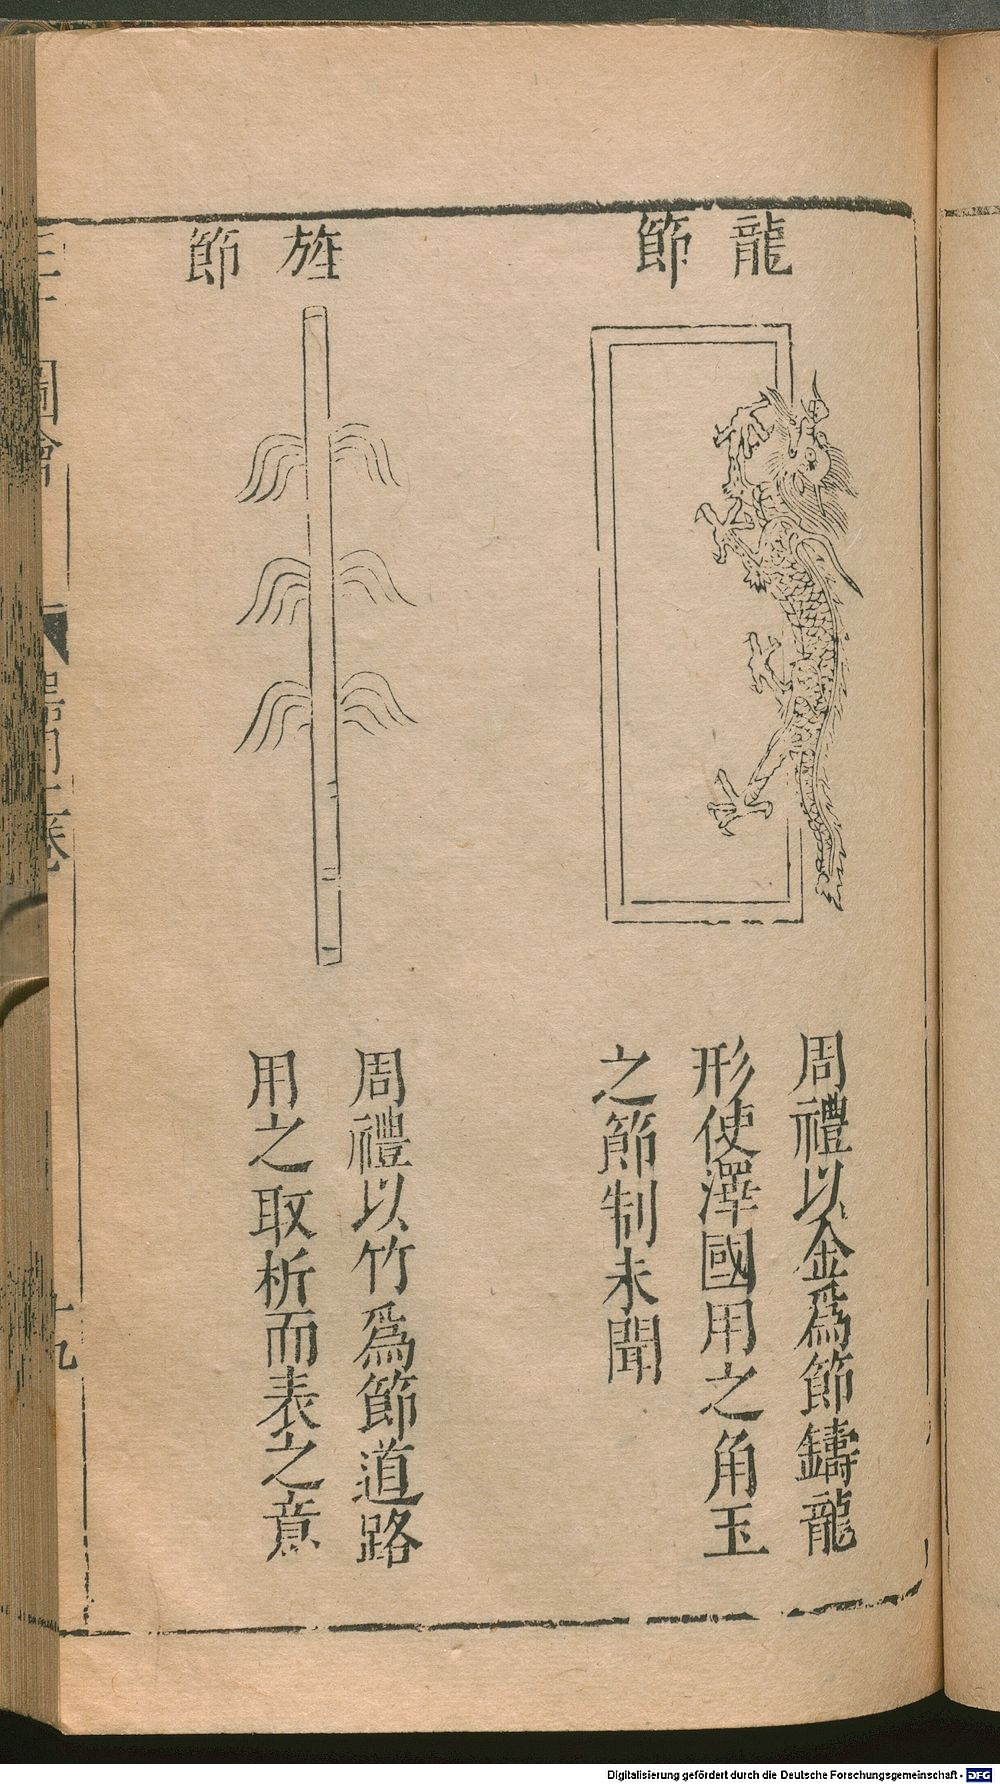 龍節
周禮以金爲節鑄龍
形使澤國用之角玉
之節制未聞
旌節
周禮以竹爲節道路
用之取析而表之意
圖會
十九
Digitalisierung gefördert durch die Deutsche Forschungsgemeinschaft - DFG